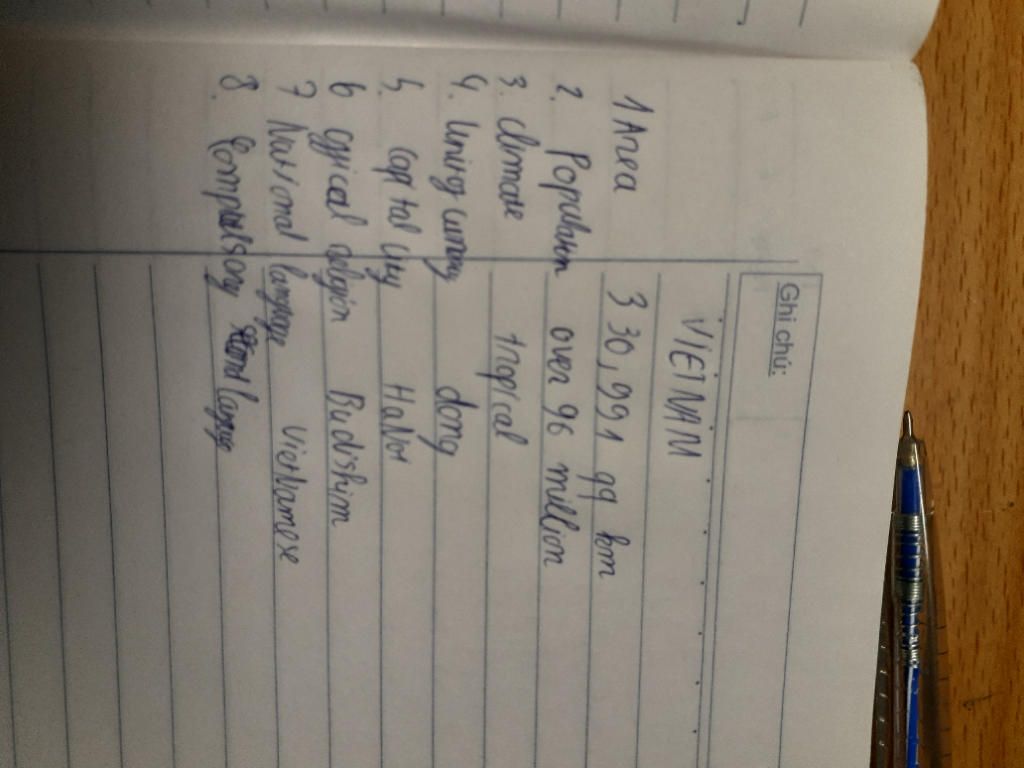 Ghi chú:
VIETNAM
1 Area 330,991 qq km
2. Population over 96 million
3. climate tropical
4. Unit of curency dong
5. capital city HaNoi
6 official religion Budishim
7 National language VietNamese
8. Compulsory second language